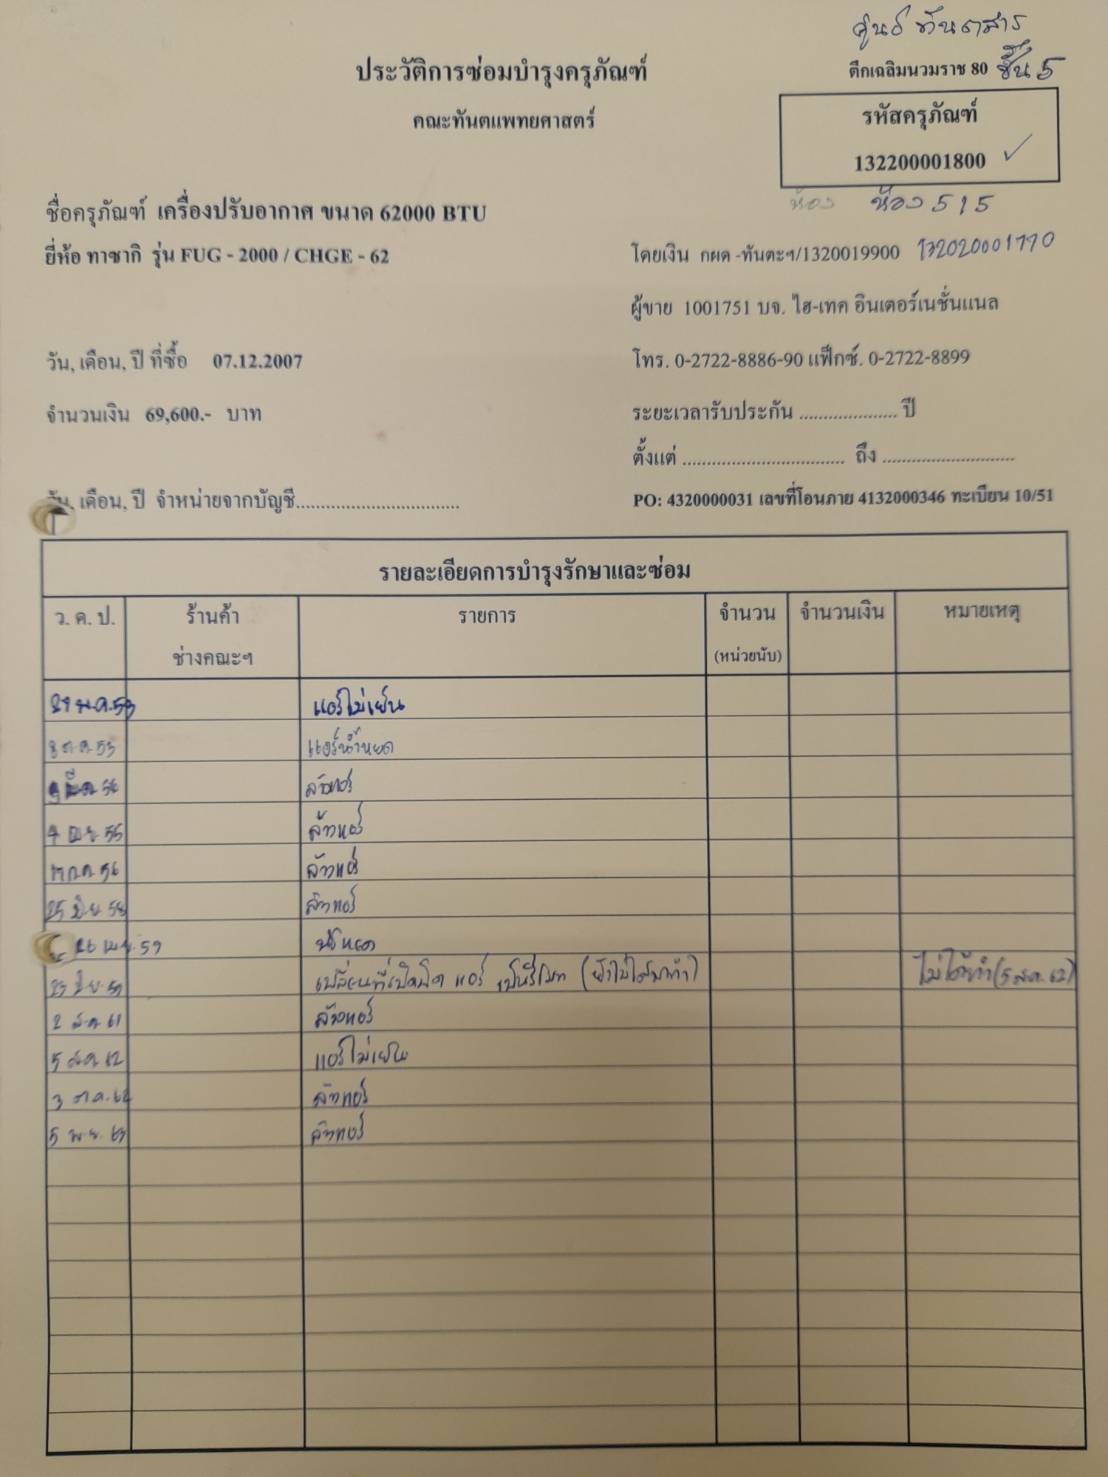 ศูนย์ทันตสาร
ประวัติการซ่อมบำรุงครุภัณฑ์
ตึกเฉลิมนวมราช 80 ชั้น 5
คณะทันตแพทยศาสตร์
รหัสครุภัณฑ์
132200001800 ✓
ห้อง ห้อง 515
ชื่อครุภัณฑ์ เครื่องปรับอากาศ ขนาด 62000 BTU
ยี่ห้อ ทาซากิ รุ่น FUG - 2000 / CHGE - 62
โดยเงิน กผด -ทันตะฯ/1320019900 132020001770
ผู้ขาย 1001751 บจ. ไฮ-เทค อินเตอร์เนชั่นแนล
วัน, เดือน, ปี ที่ซื้อ 07.12.2007
โทร. 0-2722-8886-90 แฟ็กซ์. 0-2722-8899
จำนวนเงิน 69,600.- บาท
ระยะเวลารับประกัน .................... ปี
ตั้งแต่ ................................. ถึง ...........................
วัน, เดือน, ปี จำหน่ายจากบัญชี.................................
PO: 4320000031 เลขที่โอนภาย 4132000346 ทะเบียน 10/51
รายละเอียดการบำรุงรักษาและซ่อม
ว. ด. ป. ร้านค้า รายการ จำนวน จำนวนเงิน หมายเหตุ
ช่างคณะฯ (หน่วยนับ)
แอร์ไม่เย็น
8 ต.ค. 55 แอร์น้ำหยด
ล้างแอร์
4 เม.ย. 56 ล้างแอร์
ก.ค. 56 ล้างแอร์
25 มิ.ย. 58 ล้างแอร์
26 เม.ย. 59 น้ำหยด
มิ.ย. 59 เปลี่ยนที่เปิดปิด แอร์ เป็นรีโมท (ยังไม่ได้มาทำ) ไม่ได้ทำ (5 ส.ค. 62)
2 ส.ค. 61 ล้างแอร์
5 ส.ค. 62 แอร์ไม่เย็น
3 ต.ค. 62 ล้างแอร์
5 พ.ย. 63 ล้างแอร์